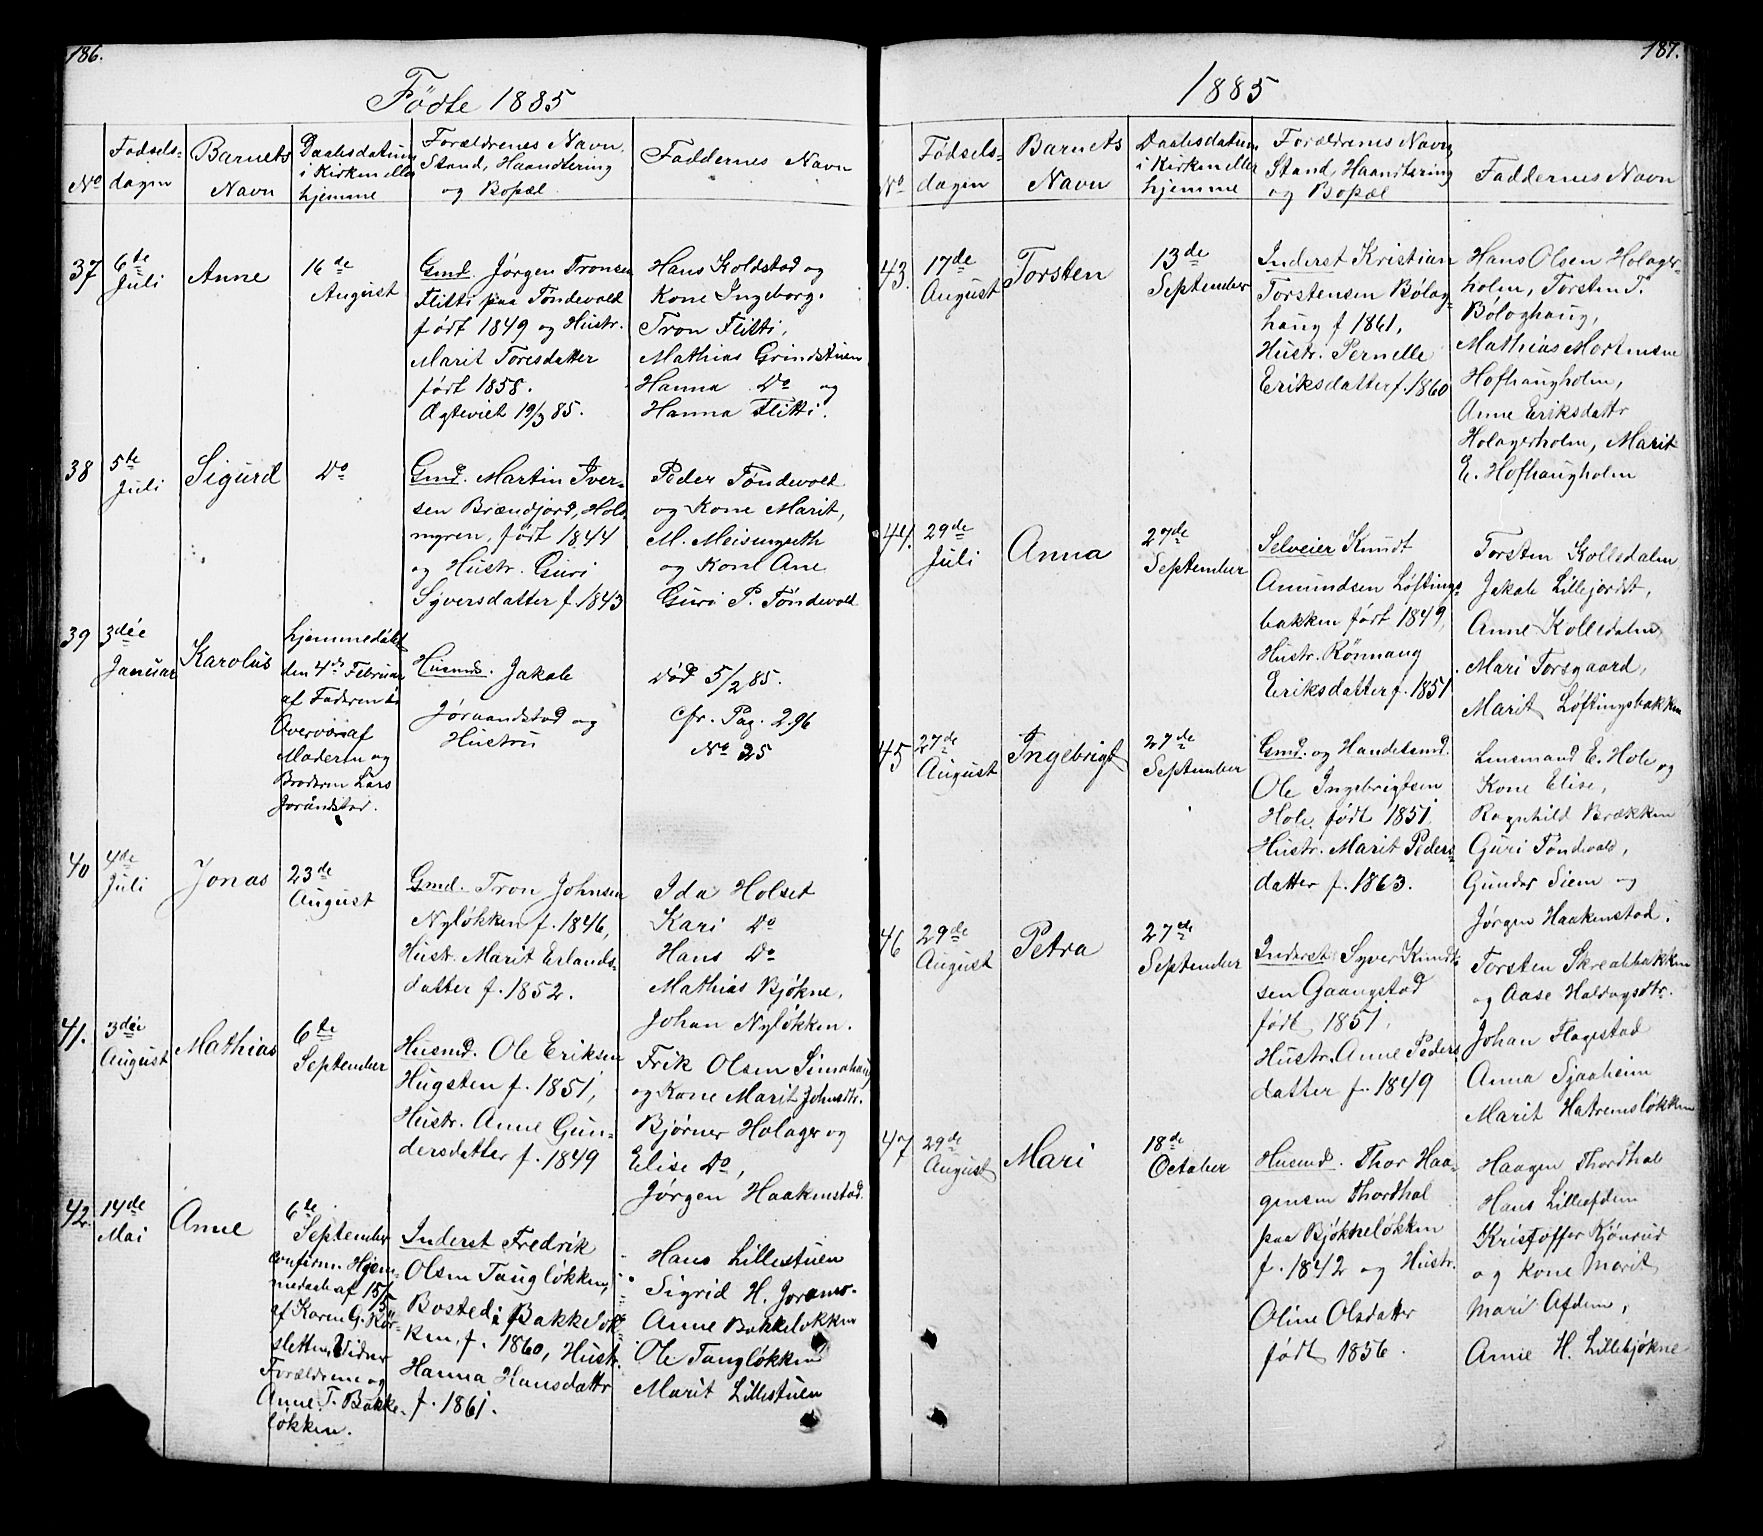 186.
Födte 1885
No
Fødsels-
dagen
Barnets
Navn
Daabsdatum
i Kirken eller
hjemme
Forældrenes Navn,
Stand, Haandtering
og Bopæl
Faddernes Navn
37
6te
Juli
Anne
16de
August
Gmd. Jørgen Tronsen
Flitti paa Töndevold
født 1849 og Hustr.
Marit Toresdatter
født 1858.
Ægteviet 19/3 85.
Hans Koldstad og
Kone Ingeborg.
Tron Flitti,
Mathias Grindstuen
Hanna Do og
Hanna Flitti.
38
5te
Juli
Sigurd
Do
Gmd. Martin Iver-
sen Brændjord, Hol-
myren, født 1844
og Hustr. Guri
Syversdatter f. 1843
Peder Töndevold
og Kone Marit,
M. Meisingseth
og Kone Ane
Guri P. Töndevold
39
3die
Januar
Karolus
hjemmedøbt
den 4de Februar
af Faderen i
Overvær af
Moderen og
Broderen Lars
Jorandstad.
Husmd. Jakob
Joraandstad og
Hustru
Död 5/2 85.
cfr. Pag. 296
No 25
40
4de
Juli
Jonas
23de
August
Gmd. Tron Johnsen
Nyløkken f. 1846,
Hustr. Marit Erlands-
datter f. 1852.
Ida Holset
Kari Do
Hans Do
Mathias Bjøkne,
Johan Nyløkken.
41.
3die
August
Mathias
6te
September
Husmd. Ole Eriksen
Hugsten f. 1851,
Hustr. Anne Gun-
dersdatter f. 1849
Erik Olsen Sinnahaug
og Kone Marit Johnsdtr.
Bjørner Holager og
Elise Do,
Jørgen Haakenstad.
42.
14de
Mai
Anne
6te
September
confirm. Hjem-
medaab af 15/5
af Karen G. Kør-
sletten, Vidner
Forældrene og
Anne T. Bakke-
løkken.
Inderst Fredrik
Olsen Taugløkken,
Bosted i Bakkeløk-
ken, f. 1860, Hustr.
Hanna Hansdattr
f. 1861.
Hans Lillestuen
Sigrid H. Joramo.
Anne Bakkeløkken
Ole Taugløkken
Marit Lillestuen
187.
1885
No
Fødsels-
dagen
Barnets
Navn
Daabsdatum
i Kirken eller
hjemme
Forældrenes Navn,
Stand, Haandtering
og Bopæl
Faddernes Navn
43.
17de
August
Torsten
13de
September
Inderst Kristian
Torstensen Bølag-
haug f 1861,
Hustr. Pernelle
Eriksdatter f. 1860
Hans Olsen Holager-
holm, Torsten T.
Bøloghaug,
Mathias Mortensen
Hofhaugholm,
Anne Eriksdattr
Holagerholm, Marit
E. Hofhaugholm
44.
29de
Juli
Anna
27de
September
Selveier Knudt
Amundsen Løftings-
bakken født 1849,
Hustr. Rönnaug
Eriksdatter f. 1851
Torsten Kollsdalen
Jakob Lillejordet,
Anne Kollsdalen
Mari Torsgaard,
Marit Løftingsbakken
45
27de
August
Ingebrigt
27de
September
Gmd. og Handelsmd.
Ole Ingebrigtsen
Hole, født 1851,
Hustr. Marit Peders-
datter f. 1863.
Lensmand E. Hole og
Kone Elise,
Ragnhild Brækken
Guri Töndevold,
Gunder Siem og
Jørgen Haakenstad.
46
29de
August
Petra
27de
September
Inderst Syver Knudt-
sen Gaangstad
født 1851,
Hustr. Anne Peders
datter f. 1849
Torsten Skrebakken
og Aase Haldogsdtr.
Johan Flagestad
Anna Sjaaheim
Marit Hatremsløkken
47
29de
August
Mari
18de
October
Husmd. Thor Haa-
gensen Thordhal
paa Bjøkneløkken
f. 1842 og Hustr.
Oline Olsdatter
født 1856.
Haagen Thordhal
Hans Lilleafdem
Kristoffer Kjönrud
og Kone Marit
Mari Afdem,
Anne H. Lillebjøkne